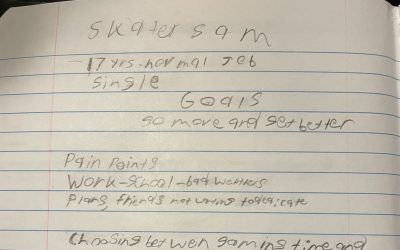 Skater Sam
-17 yrs-normal Jeb
Single
Goals
go more and get better
Pain Points
Work-school-bad weathers
Plans, friends not
Choosing between gaming time and